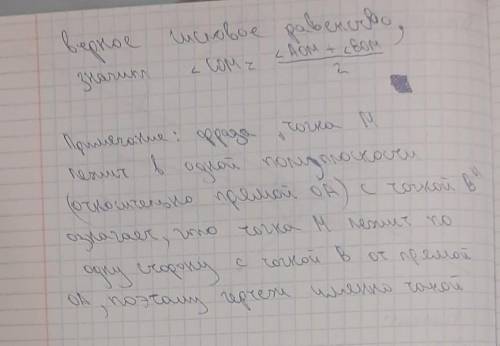 верное числовое равенство,
значит ∠COM = (∠AOM + ∠BOM) / 2
Примечание: фраза „точка M
лежит в одной полуплоскости
(относительно прямой OA) с точкой B"
означает, что точка M лежит по
одну сторону с точкой B от прямой
OA, поэтому чертеж именно такой